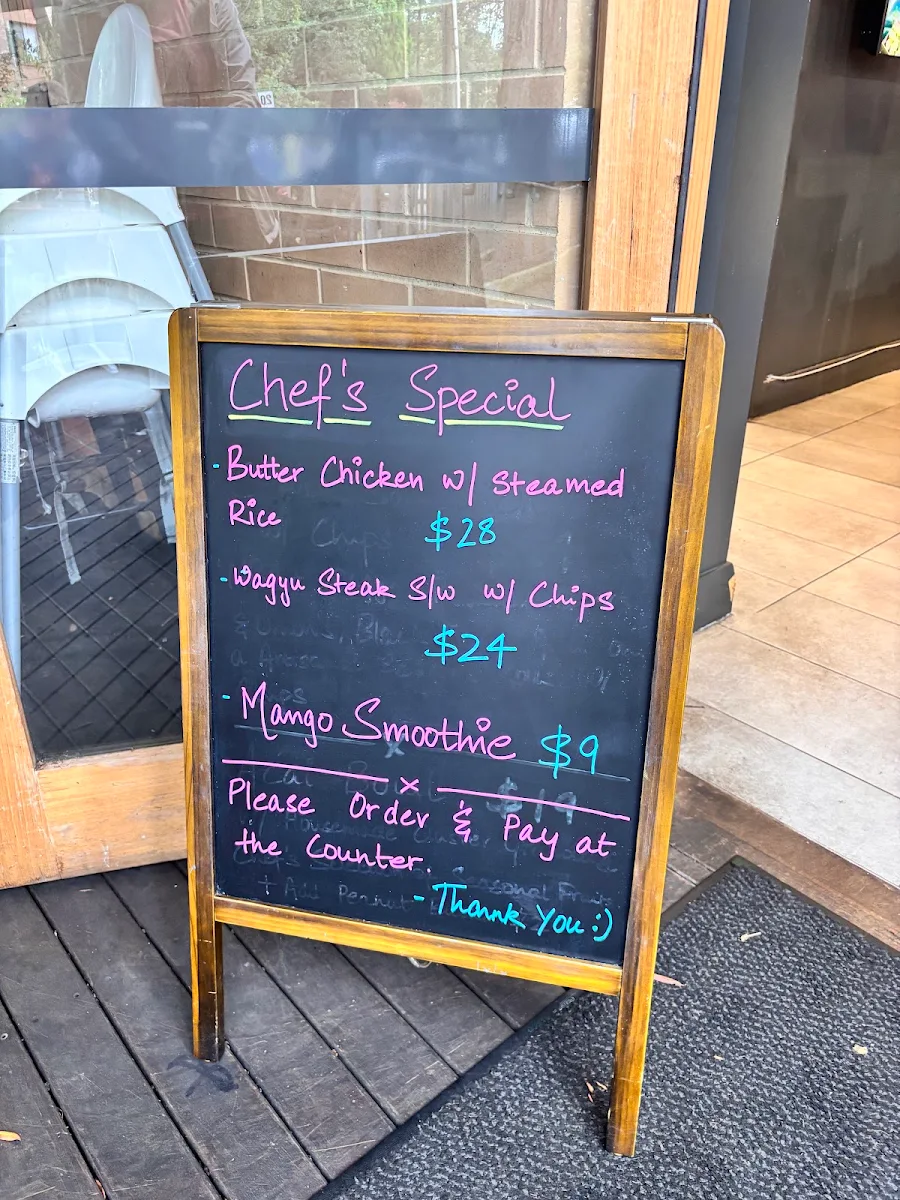 Chef's Special
- Butter Chicken w/ Steamed
Rice $28
- Wagyu Steak S/w w/ Chips
$24
- Mango Smoothie $9
x
Please Order & Pay at
the Counter.
- Thank You :)